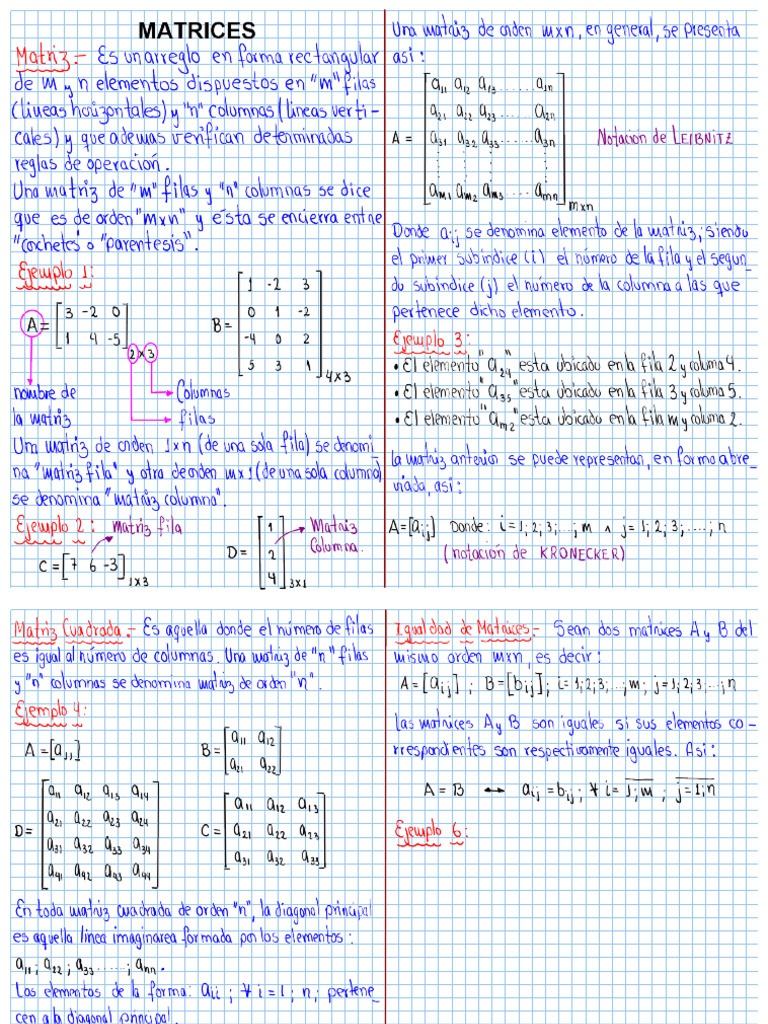 MATRICES
Matriz.- Es un arreglo en forma rectangular
de m y n elementos dispuestos en "m" filas
(lineas horizontales) y "n" columnas (lineas verti-
cales) y que ademas verifican determinadas
reglas de operación.
Una matriz de "m" filas y "n" columnas se dice
que es de orden "m×n" y ésta se encierra entre
"corchetes" o "parentesis".
Ejemplo 1:
A = [3 -2 0
1 4 -5] 2×3
B = [1 -2 3
0 1 -2
-4 0 2
5 3 1] 4×3
nombre de
la matriz
Columnas
filas
Una matriz de orden 1×n (de una sola fila) se denomi
na "matriz fila" y otra de orden m×1 (de una sola columna)
se denomina "matriz columna".
Ejemplo 2:
matriz fila
C = [7 6 -3] 1×3
D = [1
2
4] 3×1
Matriz
Columna.
Una matriz de orden m×n, en general, se presenta
así:
A = [a11 a12 a13 ...... a1n
a21 a22 a23 ...... a2n
a31 a32 a33 ...... a3n
⋮ ⋮ ⋮ ⋮
am1 am2 am3 .... amn] m×n
Notacion de LEIBNITZ
Donde aij se denomina elemento de la matriz; siendo
el primer subindice (i) el número de la fila y el segun_
do subíndice (j) el número de la columna a las que
pertenece dicho elemento.
Ejemplo 3:
• El elemento "a24" esta ubicado en la fila 2 y columa 4.
• El elemento "a35" esta ubicado en la fila 3 y columa 5.
• El elemento "am2" esta ubicado en la fila m y columa 2.
la matriz anterior se puede representar, en forma abre_
viada, así:
A=[aij] Donde: i=1;2;3;...;m ∧ j=1;2;3;....;n
(notación de KRONECKER)
Matriz Cuadrada.- Es aquella donde el número de filas
es igual al número de columnas. Una matriz de "n" filas
y "n" columnas se denomina matriz de orden "n".
Ejemplo 4:
A = [a11]
B = [a11 a12
a21 a22]
D = [a11 a12 a13 a14
a21 a22 a23 a24
a31 a32 a33 a34
a41 a42 a43 a44]
C = [a11 a12 a13
a21 a22 a23
a31 a32 a33]
En toda matriz cuadrada de orden "n", la diagonal principal
es aquella linea imaginarea formada por los elementos:
a11 ; a22 ; a33 ......; ann.
Los elementos de la forma: aii ; ∀ i = 1 ; n ; pertene_
cen a la diagonal principal.
Igualdad de Matrices.- Sean dos matrices A y B del
mismo orden m×n, es decir:
A=[aij] ; B=[bij]; i=1;2;3;...;m; j=1;2;3;..;n
Las matrices A y B son iguales si sus elementos co-
rrespondientes son respectivamente iguales. Asi:
A = B ↔ aij = bij ; ∀ i = 1;m ; j = 1;n
Ejemplo 6: